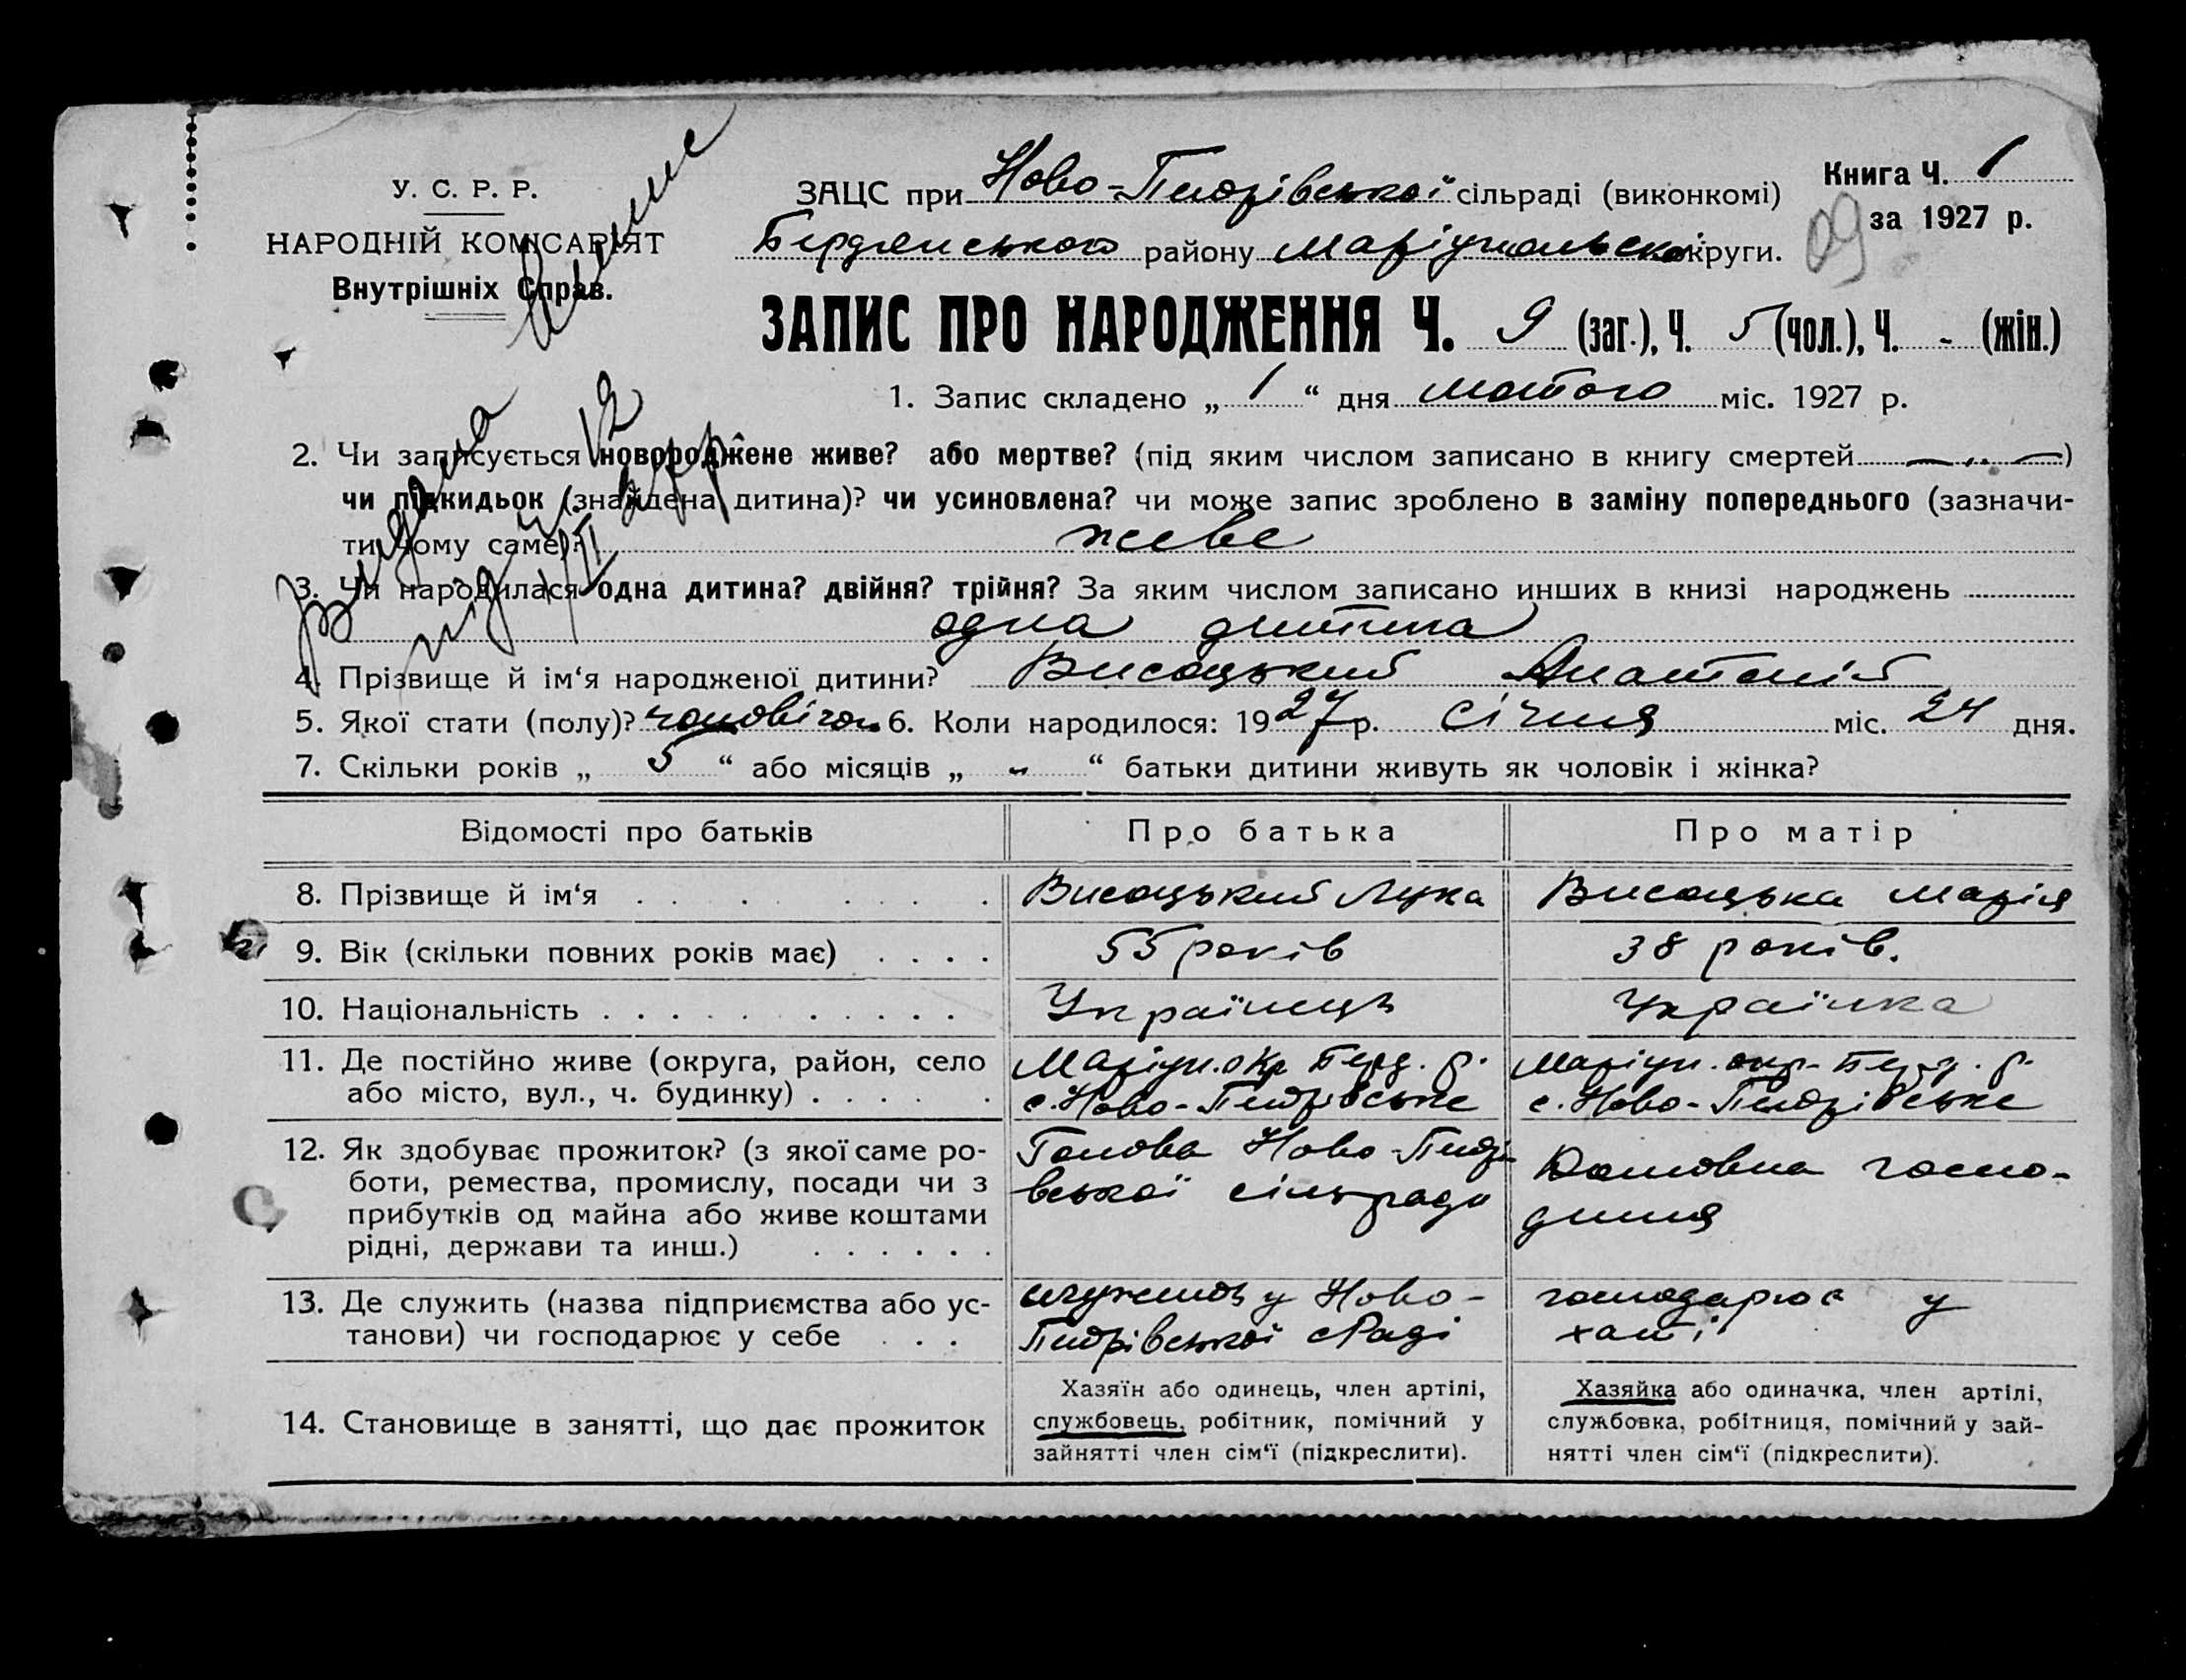 У. С. Р. Р.
НАРОДНІЙ КОМІСАРІЯТ
Внутрішніх Справ.
ЗАЦС при Ново-Петрівської сільраді (виконкомі)
Бердянського району Маріупольськ округи.
Книга Ч. 1
за 1927 р.
09
ЗАПИС ПРО НАРОДЖЕННЯ Ч. 9 (заг.), Ч. 5 (чол.), Ч. - (жін.)
1. Запис складено „ 1 “ дня лютого міс. 1927 р.
2. Чи записується новороджене живе? або мертве? (під яким числом записано в книгу смертей — „ —)
чи підкидьок (знайдена дитина)? чи усиновлена? чи може запис зроблено в заміну попереднього (зазначи-
ти чому саме)? живе
3. Чи народилася одна дитина? двійня? трійня? За яким числом записано инших в книзі народжень
одна дитина
4. Прізвище й ім‘я народженої дитини? Висоцький Анатолій
5. Якої стати (полу)? чоловічої 6. Коли народилося: 1927 р. січня міс. 24 дня.
7. Скільки років „ 5 “ або місяців „ - “ батьки дитини живуть як чоловік і жінка?
Видана
під ч. 12
Відомості про батьків Про батька Про матір
8. Прізвище й ім‘я Висоцький Лука Висоцька Марія
9. Вік (скільки повних років має) 55 років 38 років.
10. Національність Українець Українка
11. Де постійно живе (округа, район, село Маріуп. окр Берд. р. Маріуп. окр. Берд. р.
або місто, вул., ч. будинку) с. Ново-Петрівське с. Ново-Петрівське
12. Як здобуває прожиток? (з якої саме ро- Голова Ново-Петрі Домовна госпо-
боти, ремества, промислу, посади чи з вської сільради диня
прибутків од майна або живе коштами
рідні, держави та инш.)
13. Де служить (назва підприємства або ус- служить у Ново- господарює у
танови) чи господарює у себе Петрівської с/Раді хаті
14. Становище в занятті, що дає прожиток
Хазяїн або одинець, член артілі,
службовець, робітник, помічний у
зайнятті член сім‘ї (підкреслити).
Хазяйка або одиначка, член артілі,
службовка, робітниця, помічний у зай-
нятті член сім‘ї (підкреслити).